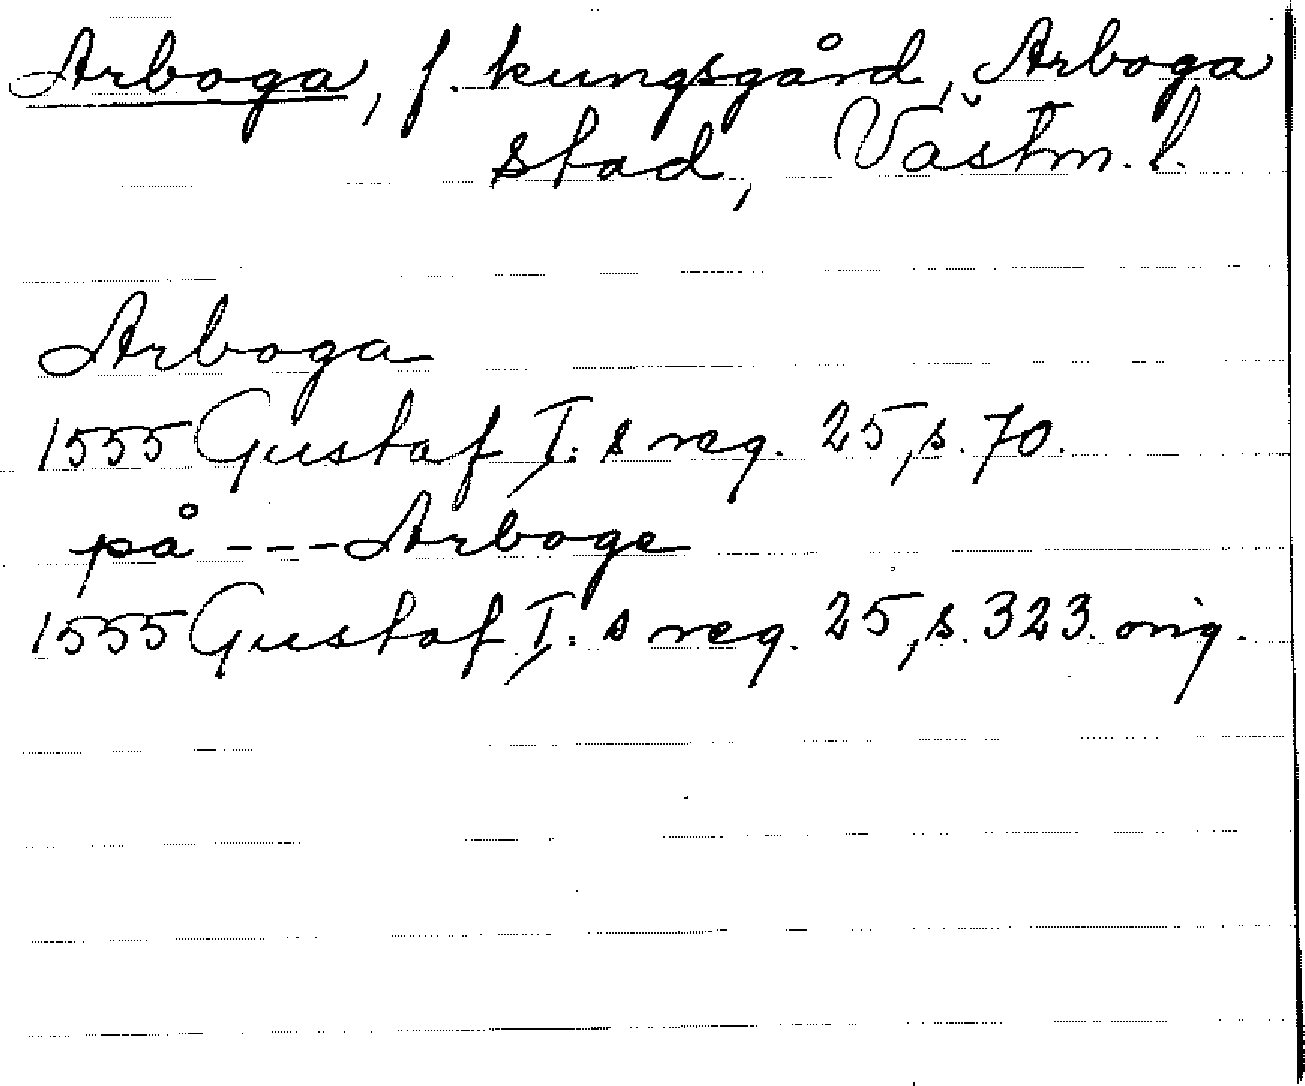 Arboga, f. kungsgård, Arboga
stad, Västm. l.
Arboga
1555 Gustaf I:s reg. 25, s. 70.
på --- Arboge
1555 Gustaf I:s reg. 25, s. 323. orig.